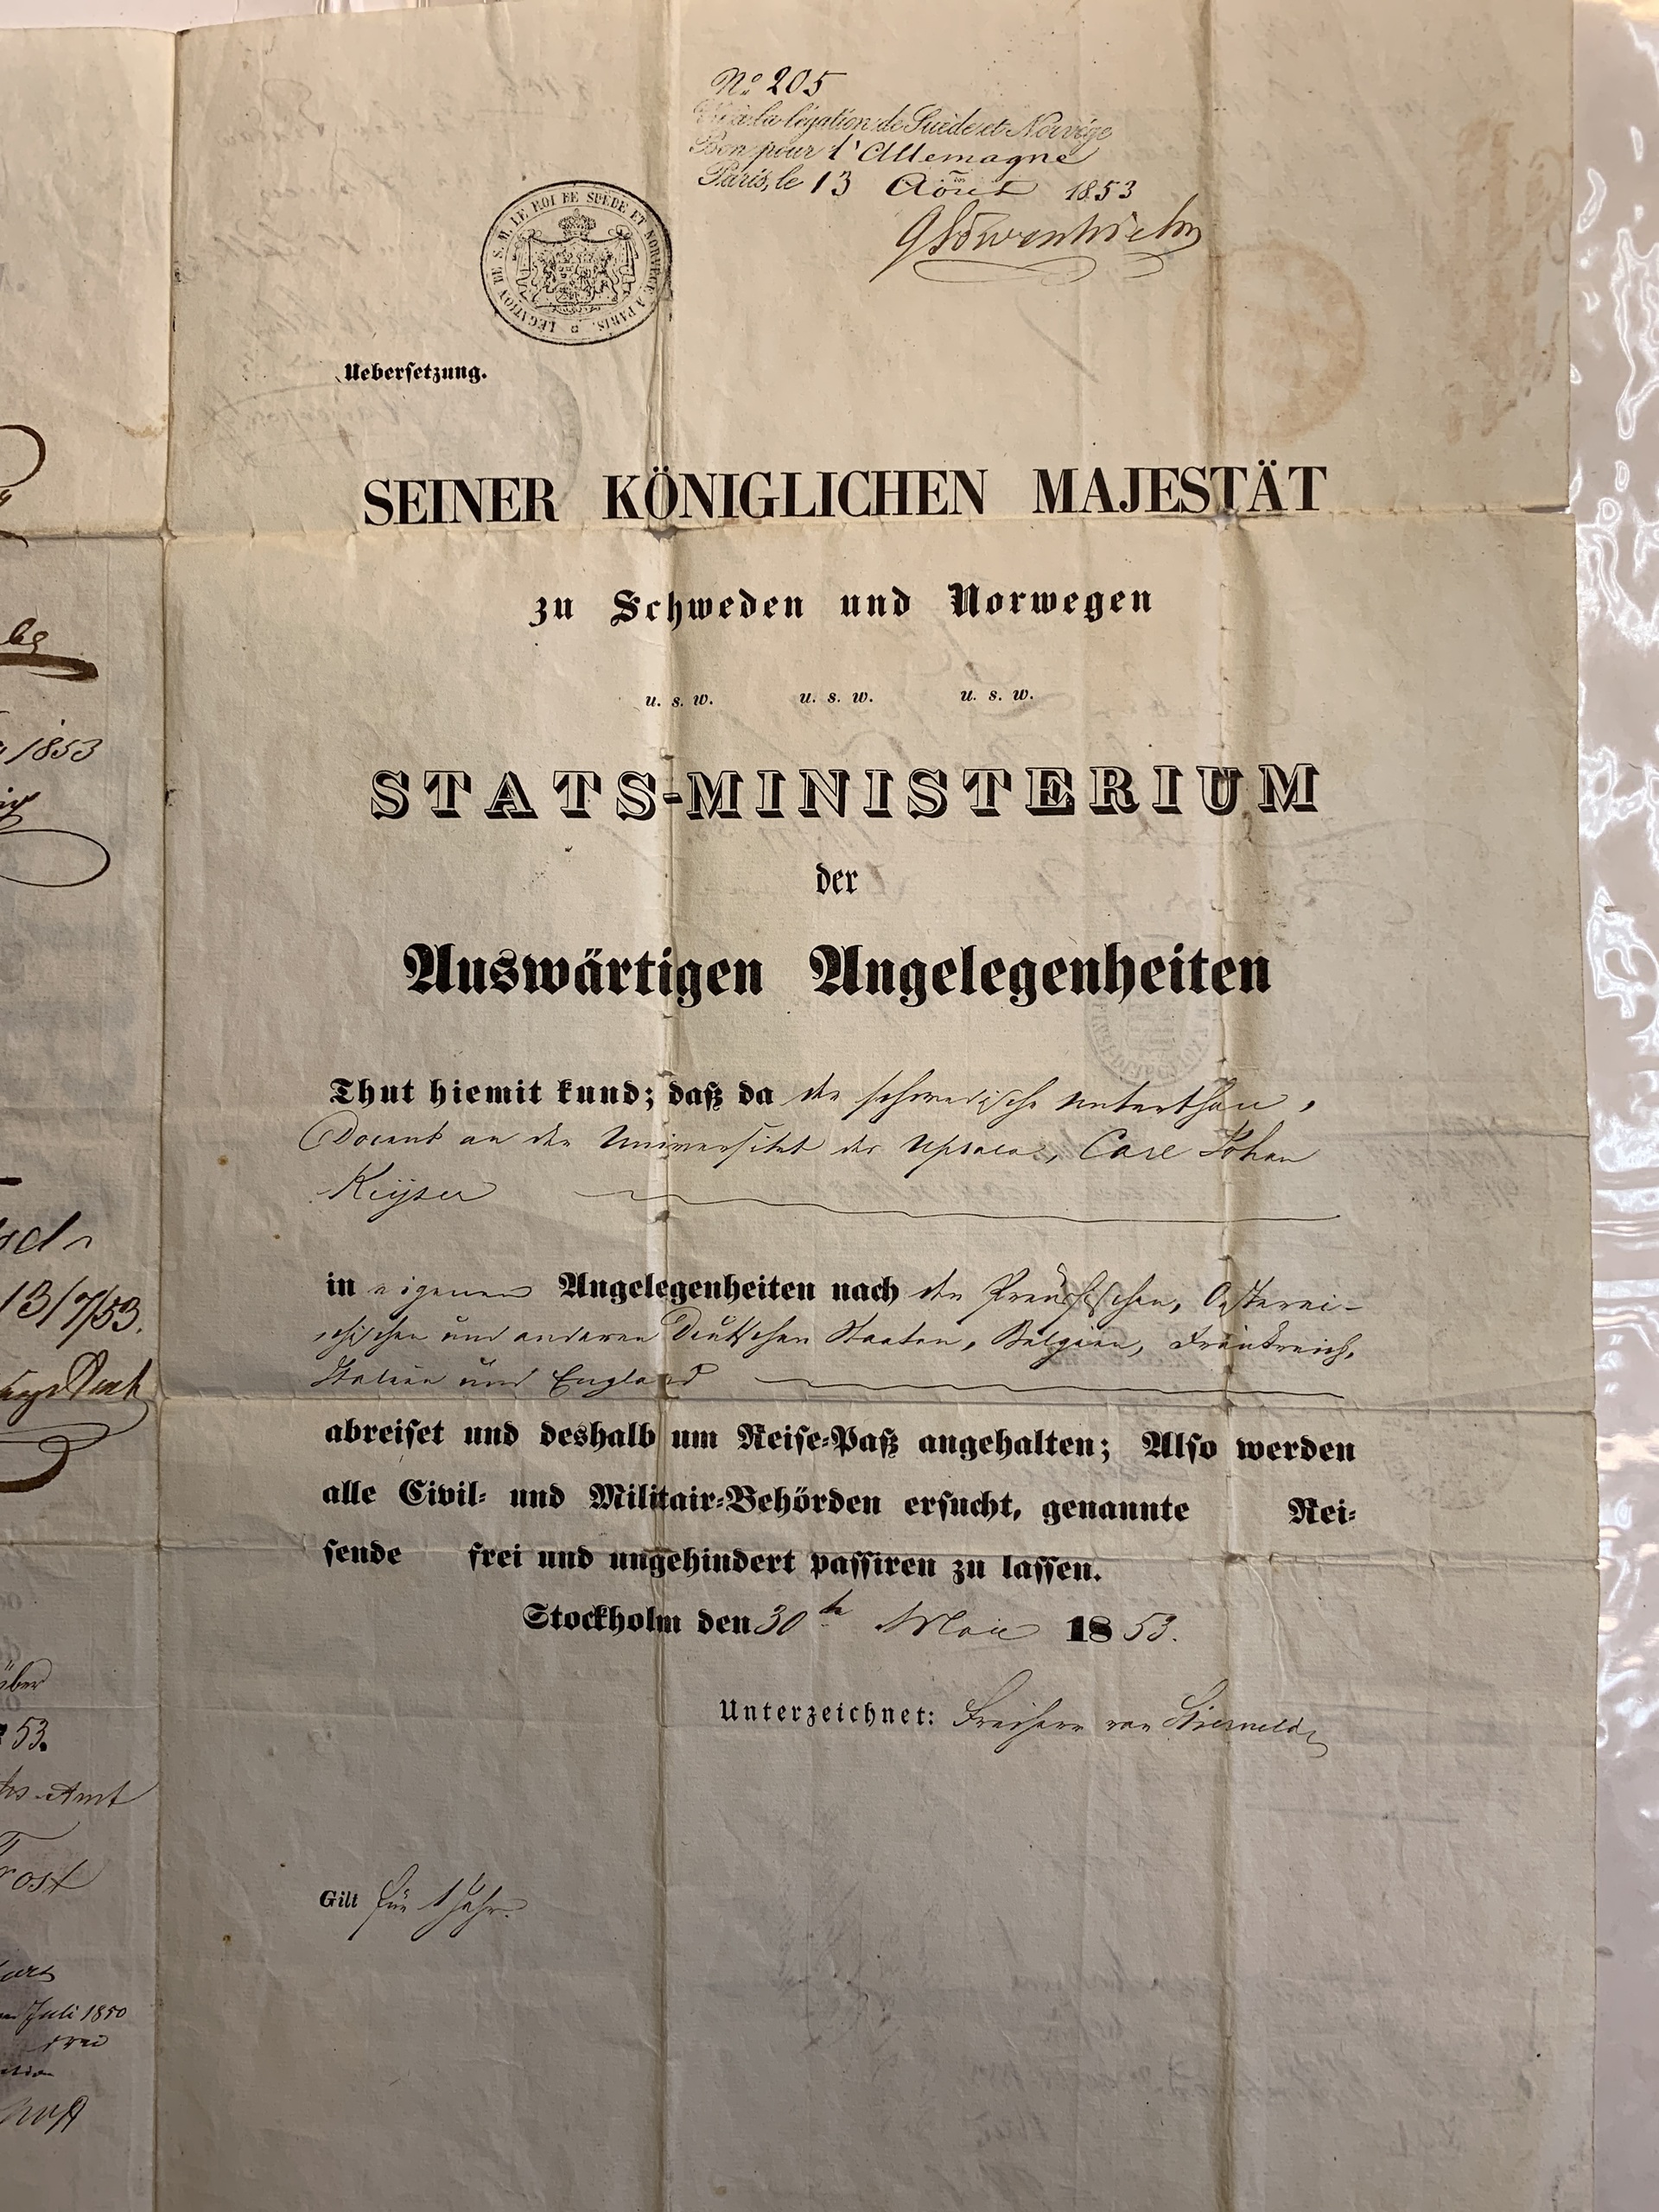 No. 205
Vu à la légation de Suède et Norvège
Bon pour l'Allemagne
Paris, le 13 Août 1853
LÉGATION DE S. M. LE ROI DE SUÈDE ET NORWÈGE A PARIS.
Uebersetzung.
SEINER KÖNIGLICHEN MAJESTÄT
zu Schweden und Norwegen
u. s. w. u. s. w. u. s. w.
STATS-MINISTERIUM
der
Auswärtigen Angelegenheiten
Thut hiemit kund; daß da der schwedische Unterthan,
Docent an der Universitet der Upsala, Carl Johan
Keijser
in eigenen Angelegenheiten nach den Preussischen, Osterrei-
schischen und anderen Deutschen Staaten, Belgien, Frankreich,
Italien und England
abreiset und deshalb um Reise-Paß angehalten; Also werden
alle Civil- und Militair-Behörden ersucht, genannte Rei-
sende frei und ungehindert passiren zu lassen.
Stockholm den 30ten Mai 1853.
Unterzeichnet: Freiherr von Stierneld
Gilt für 1 Jahr.
1853
13/7/53.
über
53.
Amt
Juli 1850